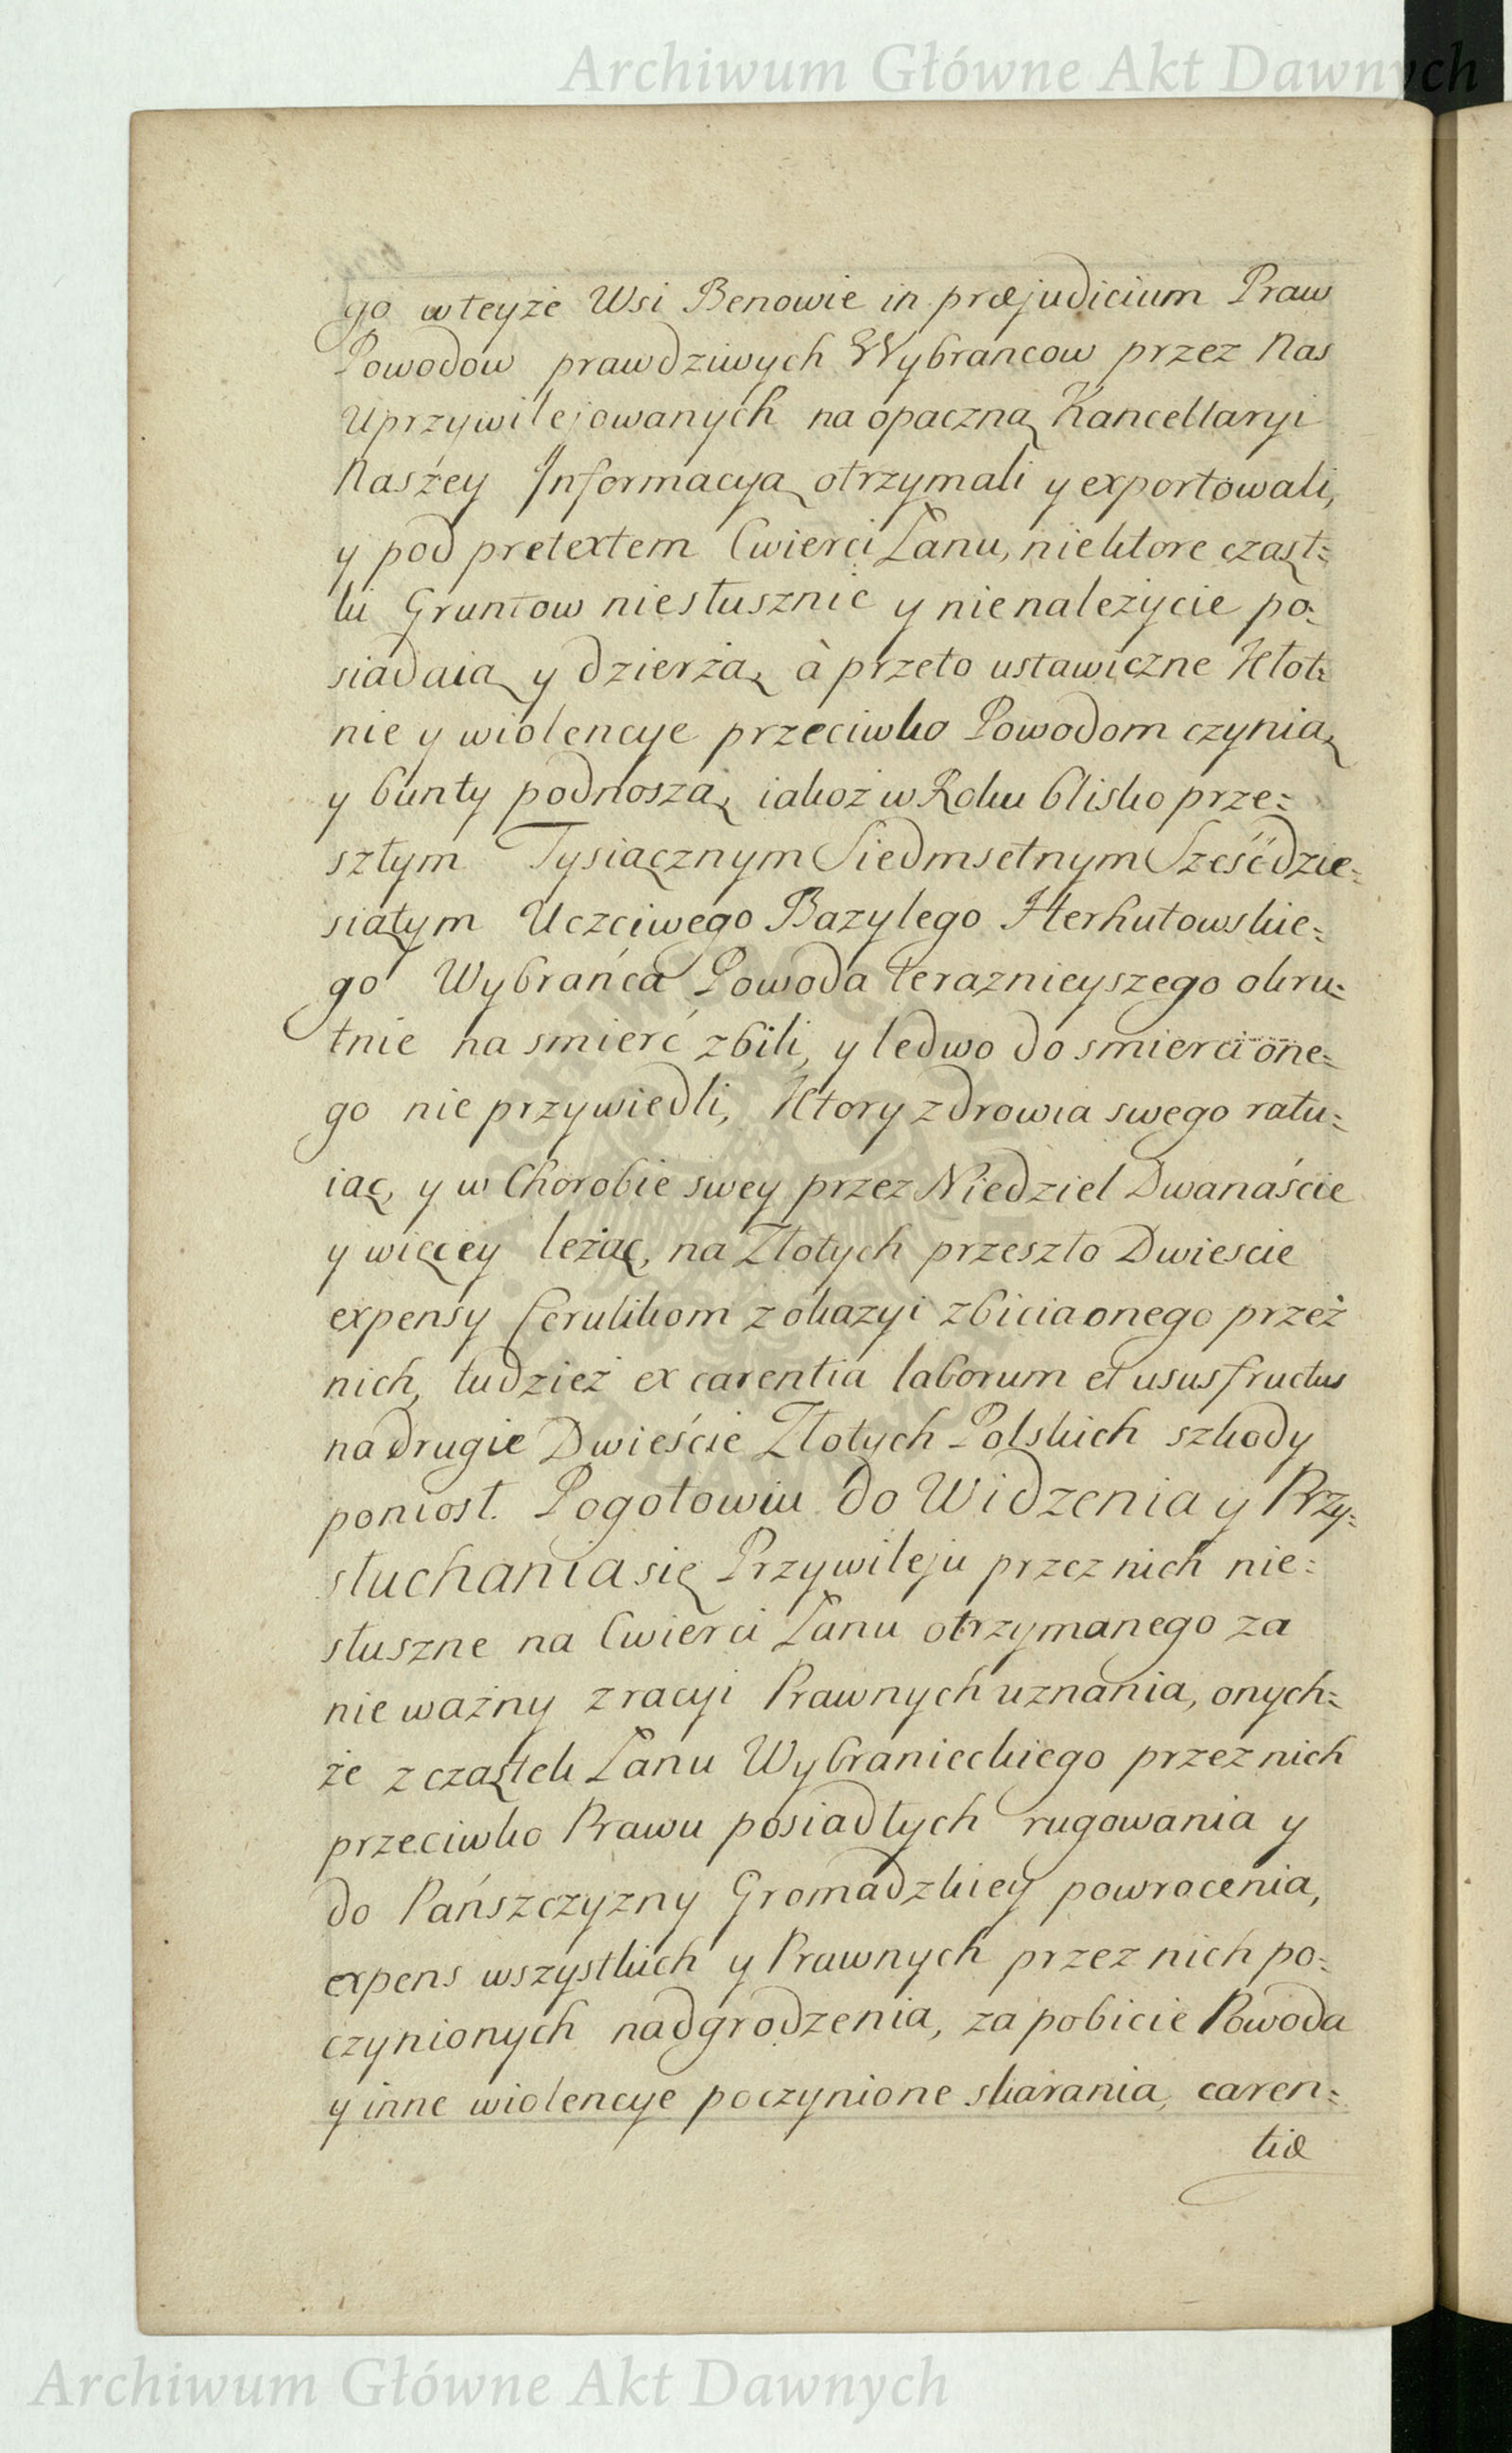 Archiwum Główne Akt Dawnych
go w teyże Wsi Benowie in præjudicium Praw
Powodow prawdziwych Wybrancow przez Nas
Uprzywilejowanych na opaczną Kancellaryi
Naszey Informacyą otrzymali y exportowali,
y pod pretextem Cwierci Łanu, niektore cząst=
ki Gruntow niesłusznie y nienależycie po=
siadaią y dzierżą, à przeto ustawiczne Kłot=
nie y wiolencye przeciwko Powodom czynią
y bunty podnoszą, iakoż w Roku blisko prze=
szłym Tysiącznym Siedmsetnym Sześćdzie=
siątym Uczciwego Bazylego Herkutowskie=
go Wybrańca Powoda teraznieyszego okru=
tnie na smierć zbili, y ledwo do smierci one=
go nie przywiedli, Ktory zdrowia swego ratu=
iąc, y w Chorobie swey przez Niedziel Dwanaście
y więcey leżąc, na Złotych przeszło Dwiescie
expensy Cerulikom z okazyi zbicia onego przez
nich, tudzież ex carentia laborum et ususfructus
na drugie Dwieście Złotych Polskich szkody
poniosł. Pogotowiu do Widzenia y Przy=
słuchania się Przywileju przez nich nie=
słuszne na Cwierci Łanu otrzymanego za
nie ważny z racyi Prawnych uznania, onych=
że z cząstek Łanu Wybranieckiego przez nich
przeciwko Prawu posiadłych rugowania y
do Pańszczyzny Gromadzkiey powrocenia,
expens wszystkich y Prawnych przez nich po=
czynionych nadgrodzenia, za pobicie Powoda
y inne wiolencye poczynione skarania, caren=
tiæ
Archiwum Główne Akt Dawnych